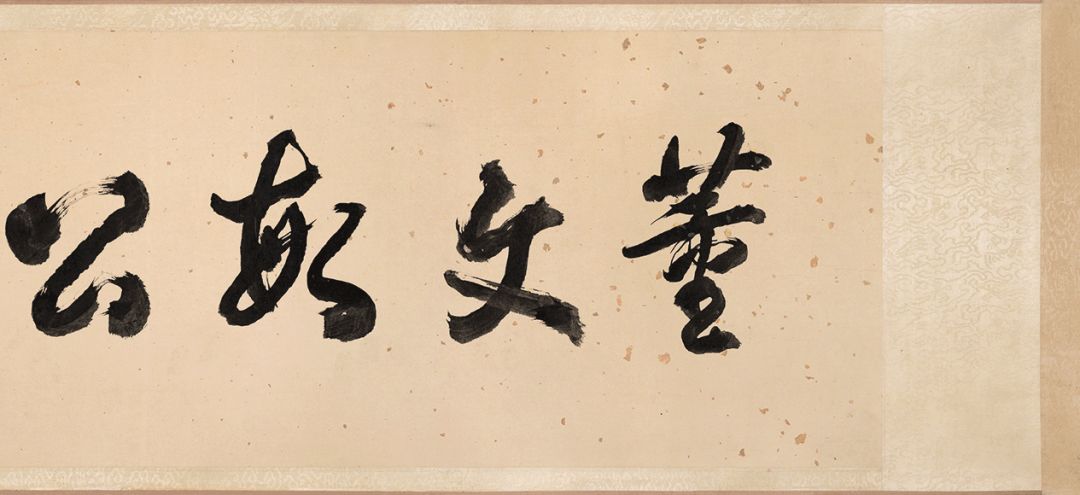 董文敏公